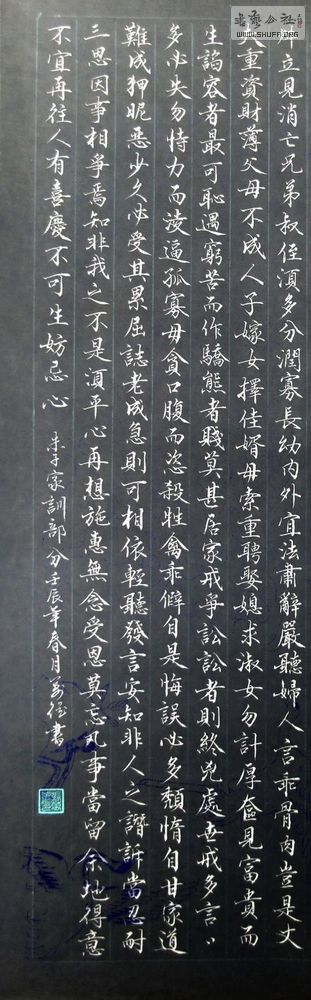 書藝公社
WWW.SHUFF.ORG
立見消亡兄弟叔侄湏多分潤寡長幼內外宜法肅辭嚴聽婦人言乖骨肉豈是丈
夫重資財薄父母不成人子嫁女擇佳婿毋索重聘娶媳求淑女勿計厚奩見富貴而
生諂容者最可恥遇窮苦而作驕態者賤莫甚居家戒爭訟訟者則終兇處世戒多言〻
多必失勿恃力而淩逼孤寡毋貪口腹而恣殺牲禽乖僻自是悔誤必多頹惰自甘家道
難成狎昵惡少久必受其累屈誌老成急則可相依輕聽發言安知非人之譖訴當忍耐
三思因事相爭焉知非我之不是湏平心再想施惠無念受恩莫忘凡事當留餘地得意
不宜再往人有喜慶不可生妨忌心
朱子家訓部分壬辰年春月書